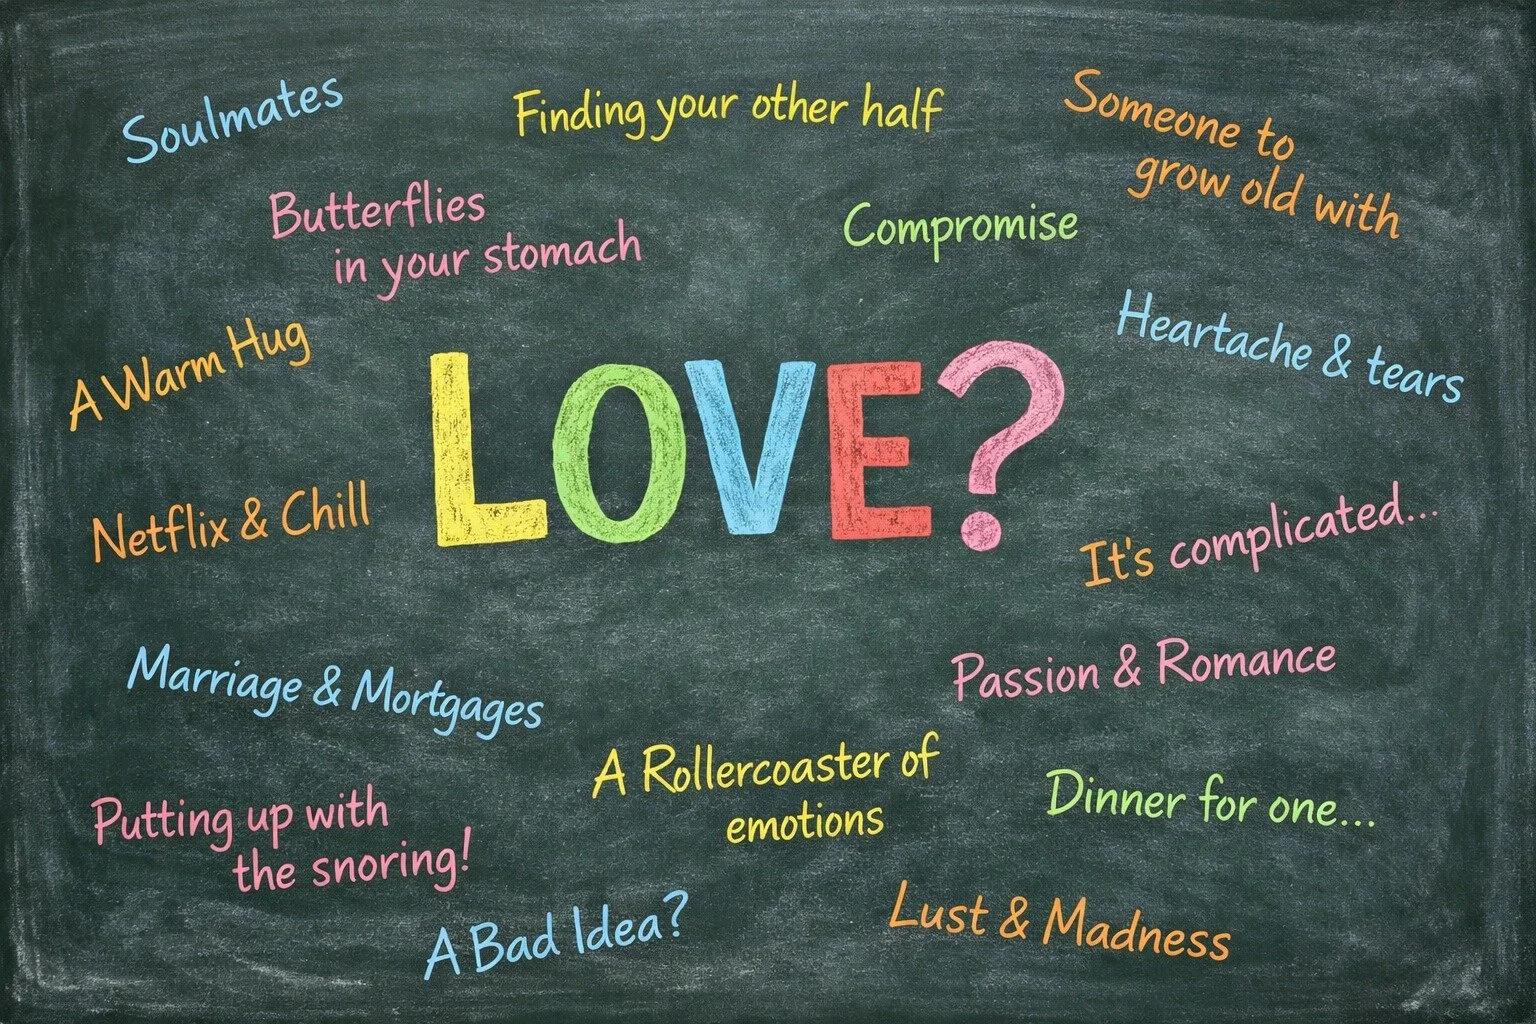 Soulmates
Finding your other half
Someone to
grow old with
Butterflies
in your stomach
Compromise
A Warm Hug
LOVE?
Heartache & tears
Netflix & Chill
It's complicated...
Marriage & Mortgages
Passion & Romance
A Rollercoaster of
emotions
Putting up with
the snoring!
Dinner for one...
A Bad Idea?
Lust & Madness